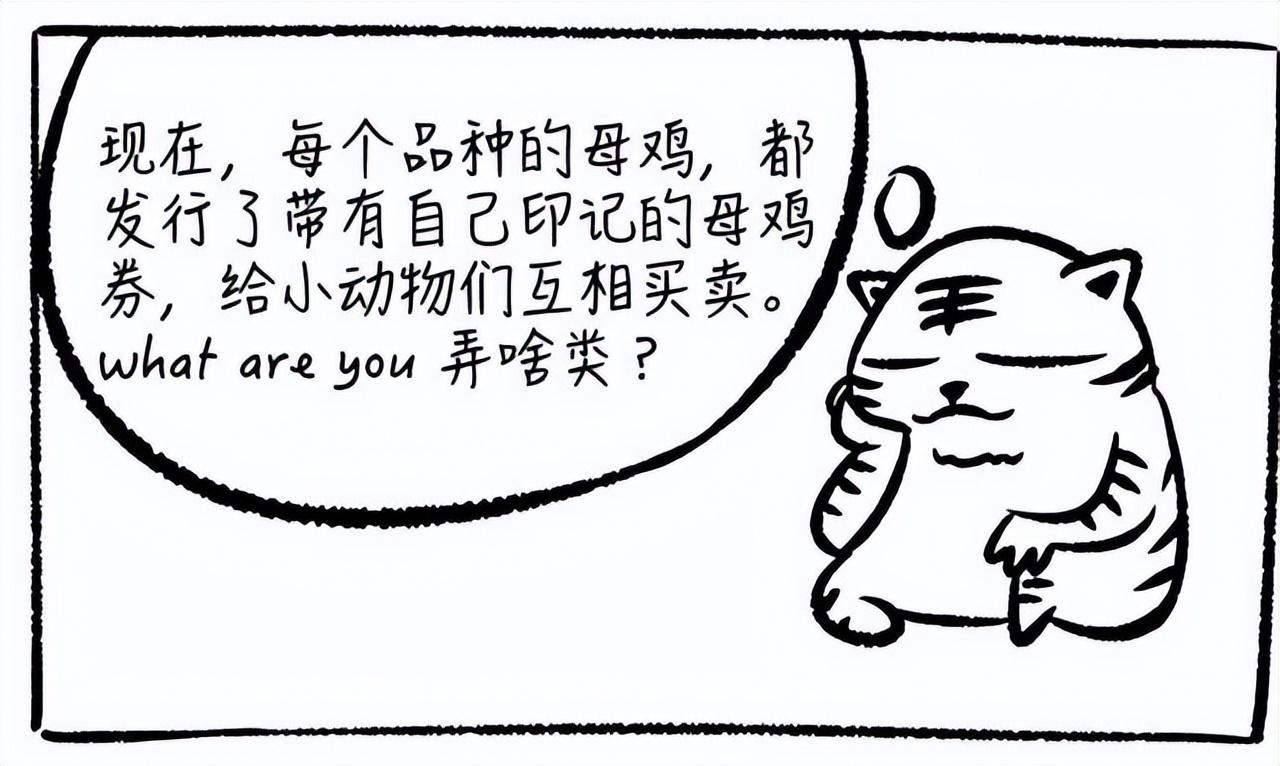 现在，每个品种的母鸡，都
发行了带有自己印记的母鸡
券，给小动物们互相买卖。
what are you 弄啥类？